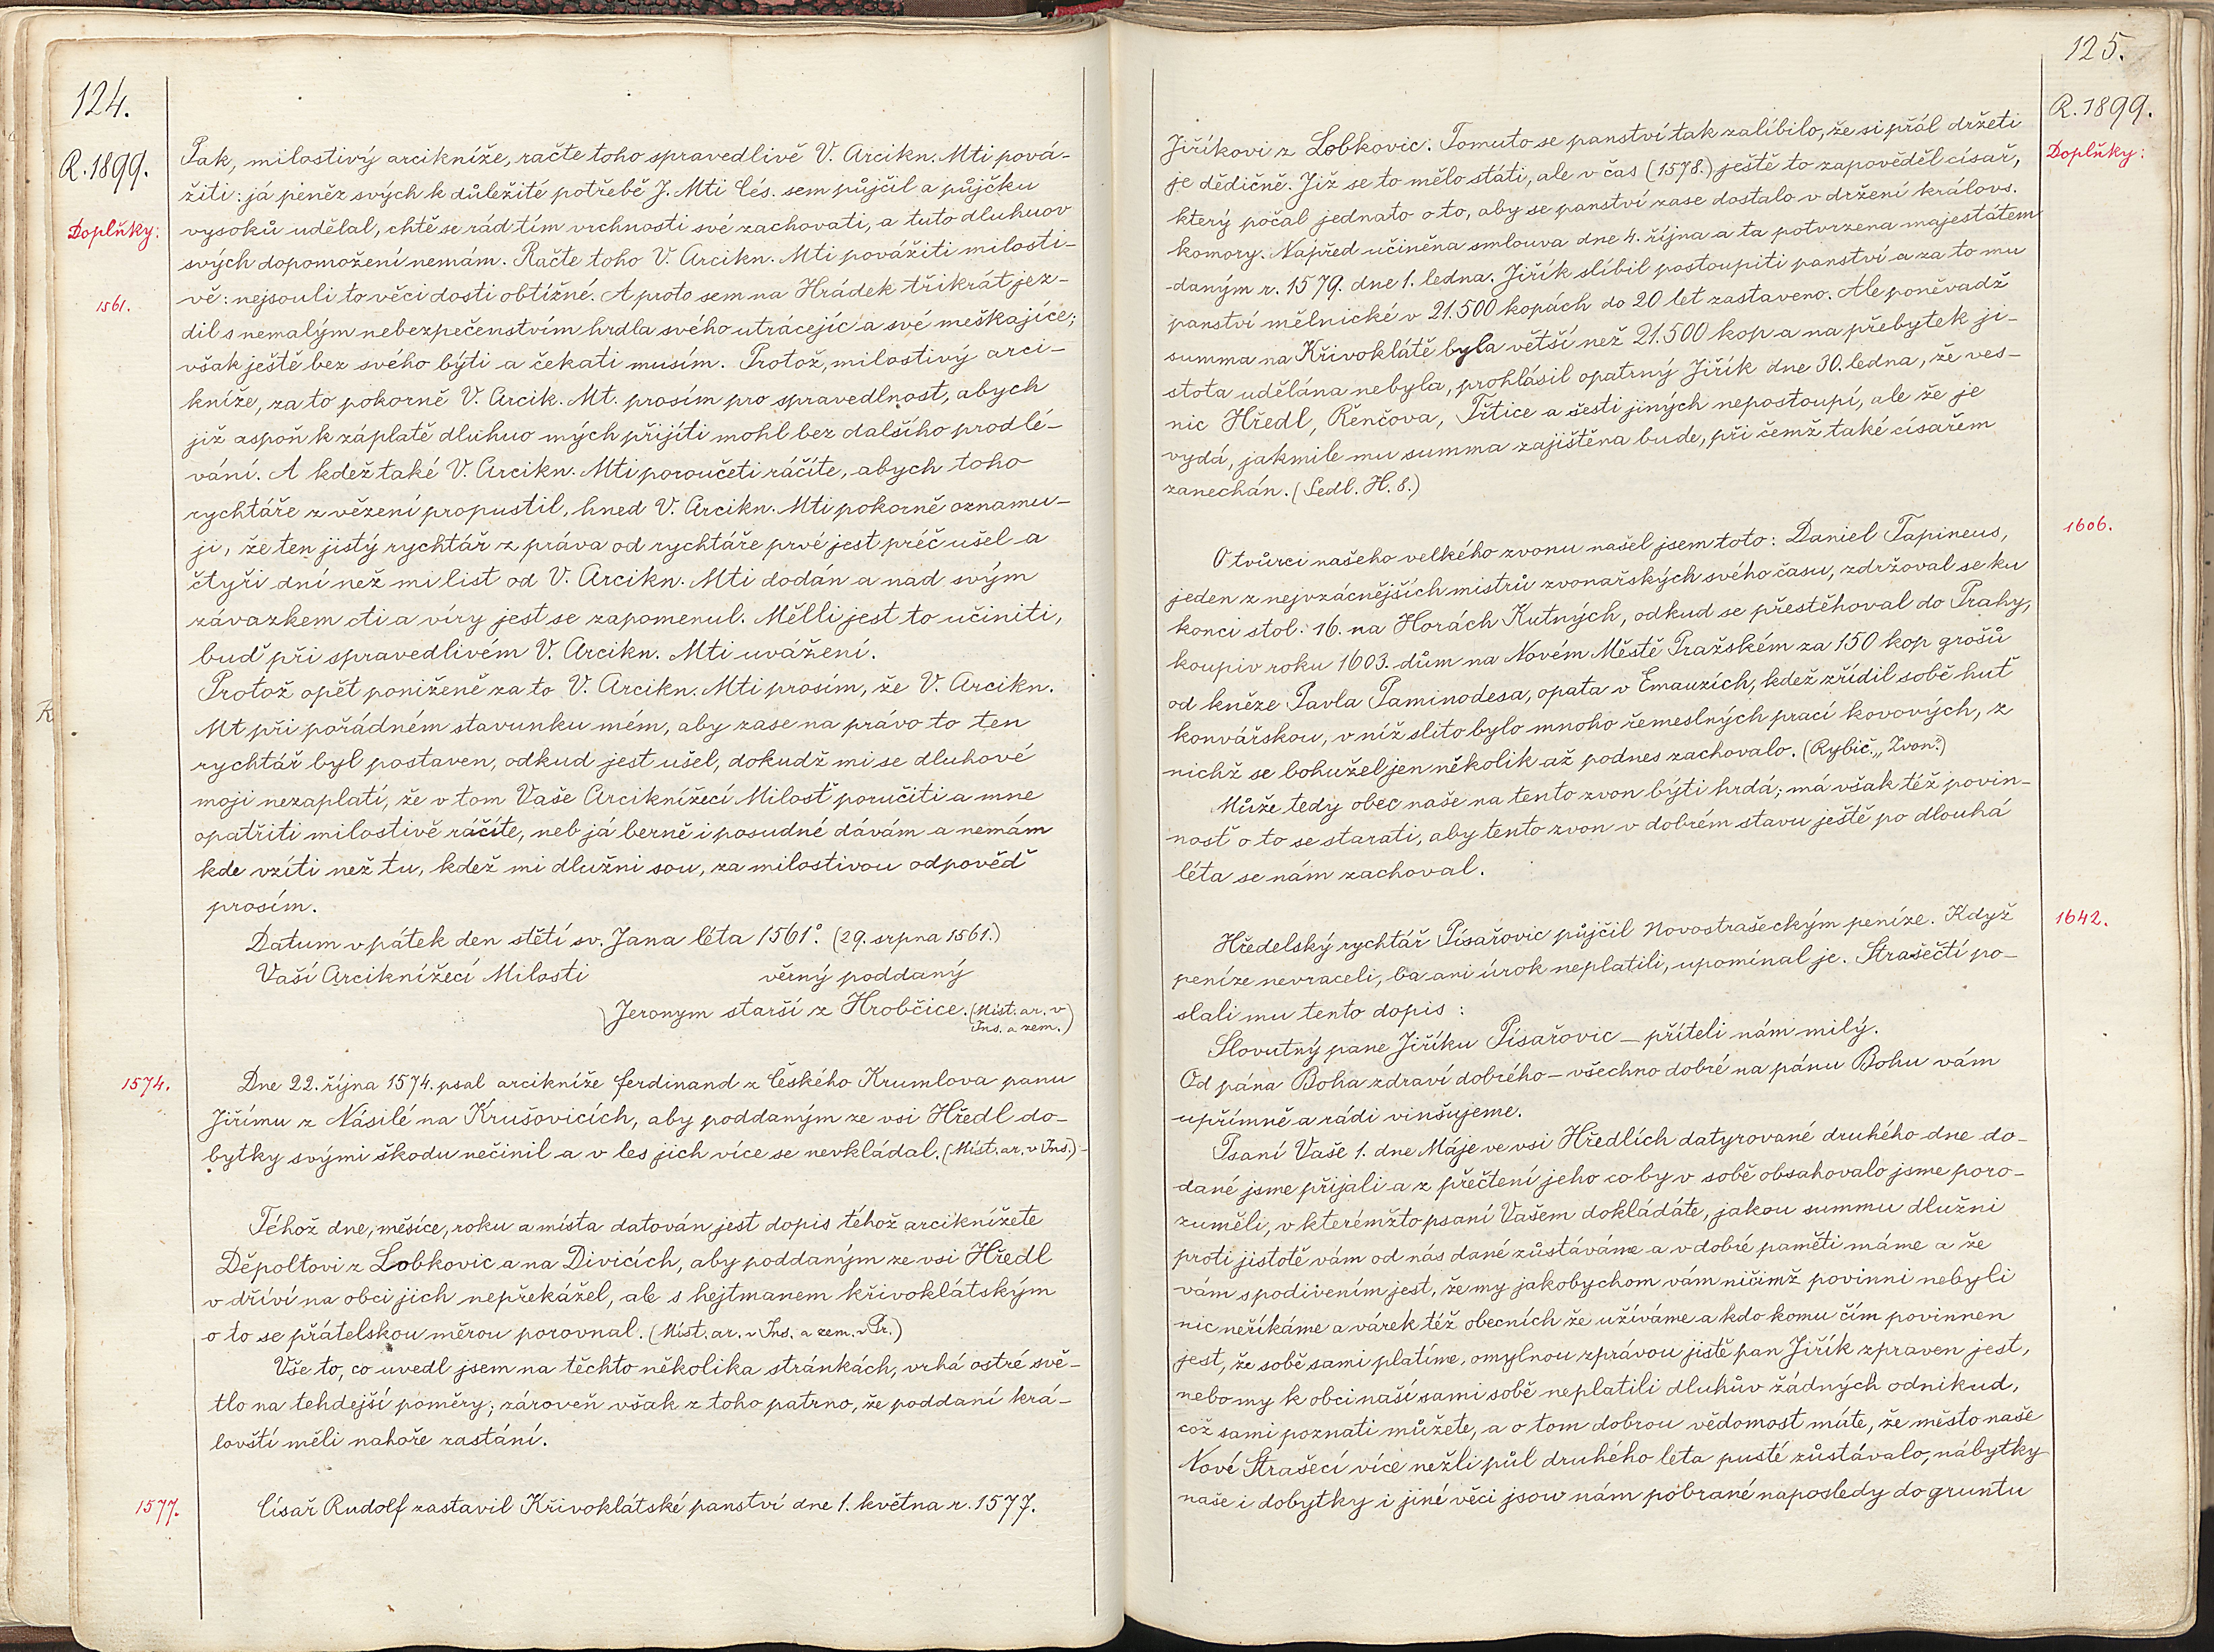 124.
R. 1899.
Doplňky:
Pak, milostivý arcikníže, račte toho spravedlivě V. Arcikn. Mti pová-
žiti: já peněz svých k důležité potřebě J. Mti Cés. sem půjčil a půjčku
vysoků udělal, chtě se rád tím vrchnosti své zachovati, a tuto dluhuov
svých dopomožení nemám. Račte toho V. Arcikn. Mti povážiti milosti-
1561.
vě: nejsouli to věci dosti obtížné. A proto sem na Hrádek třikrát jez-
dil s nemalým nebezpečenstvím hrdla svého utrácejíc a své meškajíce;
však ještě bez svého býti a čekati musím. Protož, milostivý arci-
kníže, za to pokorně V. Arcik. Mt. prosím pro spravedlnost, abych
již aspoň k záplatě dluhuo mých přijíti mohl bez dalšího prodlé-
vání. A kdež také V. Arcikn. Mti poroučeti ráčíte, abych toho
rychtáře z vězení propustil, hned V. Arcikn. Mti pokorně oznamu-
ji, že ten jistý rychtář z práva od rychtáře prvé jest préč ušel a
čtyři dní než mi list od V. Arcikn. Mti dodán a nad svým
závazkem cti a víry jest se zapomenul. Mělli jest to učiniti,
buď při spravedlivém V. Arcikn. Mti uvážení.
Protož opět poníženě za to V. Arcikn. Mti prosím, že V. Arcikn.
Mt při pořádném stavunku mém, aby zase na právo to ten
rychtář byl postaven, odkud jest ušel, dokudž mi se dluhové
moji nezaplatí, že v tom Vaše Arciknížecí Milosť poručiti a mne
opatřiti milostivě ráčíte, neb já berně i posudné dávám a nemám
kde vzíti než tu, kdež mi dlužni sou, za milostivou odpověď
prosím.
Datum v pátek den stětí sv. Jana léta 1561°. (29. srpna 1561.)
Vaší Arciknížecí Milosti věrný poddaný
Jeronym starší z Hrobčice. (Míst. ar. v
Ins. a zem.)
1574.
Dne 22. října 1574. psal arcikníže Ferdinand z Českého Krumlova panu
Jiřímu z Násilé na Krušovicích, aby poddaným ze vsi Hředl do-
bytky svými škodu nečinil a v les jich více se nevkládal. (Míst. ar. v Ins.)
Téhož dne, měsíce, roku a místa datován jest dopis téhož arciknížete
Děpoltovi z Lobkovic a na Divicích, aby poddaným ze vsi Hředl
v dříví na obci jich nepřekážel, ale s hejtmanem křivoklátským
o to se přátelskou měrou porovnal. (Míst. ar. v Ins. a zem. v Pr.)
Vše to, co uvedl jsem na těchto několika stránkách, vrhá ostré svě-
tlo na tehdejší poměry; zároveň však z toho patrno, že poddaní krá-
lovští měli nahoře zastání.
1577.
Císař Rudolf zastavil Křivoklátské panství dne 1. května r. 1577.
125.
R. 1899.
Doplňky:
Jiříkovi z Lobkovic. Tomuto se panství tak zalíbilo, že si přál držeti
je dědičně. Již se to mělo státi, ale v čas (1578.) ještě to zapověděl císař,
který počal jednato o to, aby se panství zase dostalo v držení královs.
komory. Napřed učiněna smlouva dne 4. října a ta potvrzena majestátem
daným r. 1579. dne 1. ledna. Jiřík slíbil postoupiti panství a za to mu
panství mělnické v 21.500 kopách do 20 let zastaveno. Ale poněvadž
summa na Křivoklátě byla větší než 21.500 kop a na přebytek ji-
stota udělána nebyla, prohlásil opatrný Jiřík dne 30. ledna, že ves-
nic Hředl, Řenčova, Třtice a šesti jiných nepostoupí, ale že je
vydá, jakmile mu summa zajištěna bude, při čemž také císařem
zanechán. (Sedl. H. 8.)
1606.
O tvůrci našeho velkého zvonu našel jsem toto: Daniel Tapineus,
jeden z nejvzácnějších mistrů zvonařských svého času, zdržoval se ku
konci stol. 16. na Horách Kutných, odkud se přestěhoval do Prahy,
koupiv roku 1603. dům na Novém Městě Pražském za 150 kop grošů
od kněze Pavla Paminodesa, opata v Emauzích, kdež zřídil sobě huť
konvářskou, v níž slito bylo mnoho řemeslných prací kovových, z
nichž se bohužel jen několik až podnes zachovalo. (Rybič. „Zvon.")
Může tedy obec naše na tento zvon býti hrdá; má však též povin-
nosť o to se starati, aby tento zvon v dobrém stavu ještě po dlouhá
léta se nám zachoval.
1642.
Hředelský rychtář Písařovic půjčil Novostrašeckým peníze. Když
peníze nevraceli, ba ani úrok neplatili, upomínal je. Strašečtí po-
slali mu tento dopis:
Slovutný pane Jiříku Písařovic – příteli nám milý.
Od pána Boha zdraví dobrého – všechno dobré na pánu Bohu vám
upřímně a rádi vinšujeme.
Psaní Vaše 1. dne Máje ve vsi Hředlích datyrované druhého dne do-
dané jsme přijali a z přečtení jeho co by v sobě obsahovalo jsme poro-
zuměli, v kterémžto psaní Vašem dokládáte, jakou summu dlužni
proti jistotě vám od nás dané zůstáváme a v dobré paměti máme a že
vám s podivením jest, že my jakobychom vám ničímž povinni nebyli
nic neříkáme a várek též obecních že užíváme a kdo komu čím povinnen
jest, že sobě sami platíme, omylnou zprávou jistě pan Jiřík zpraven jest,
nebo my k obci naší sami sobě neplatili dluhův žádných odnikud,
což sami poznati můžete, a o tom dobrou vědomost máte, že město naše
Nové Strašecí více nežli půl druhého léta pusté zůstávalo, nábytky
naše i dobytky i jiné věci jsou nám pobrané naposledy do gruntu